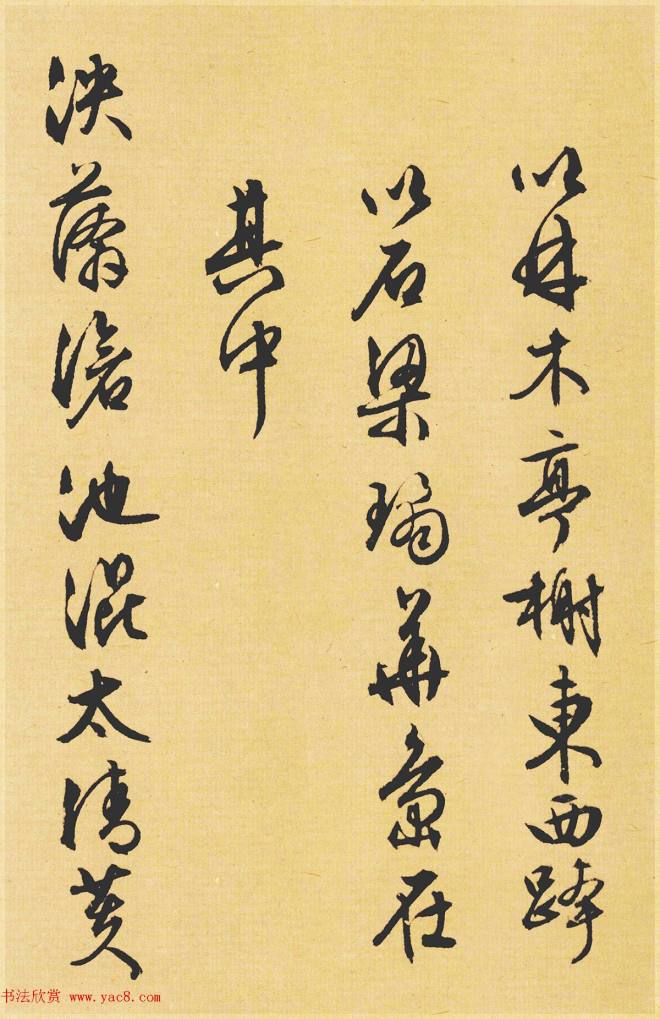 以林木亭榭東西跨
以石梁瓊華島在
其中
泱漭滄池混太清芙
书法欣赏 www.yac8.com